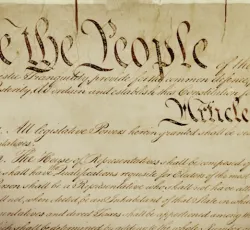 e the People of the
estic Tranquility, provide for the common defence
sterity, do ordain and establish this Constitution for
Article
All legislative Powers herein granted shall be
ntatives.
The House of Representatives shall be composed of
shall have Qualifications requisite for Electors of the most
Person shall be a Representative who shall not have
not, when elected, be an Inhabitant of that State in which
entatives and direct Taxes shall be apportioned among